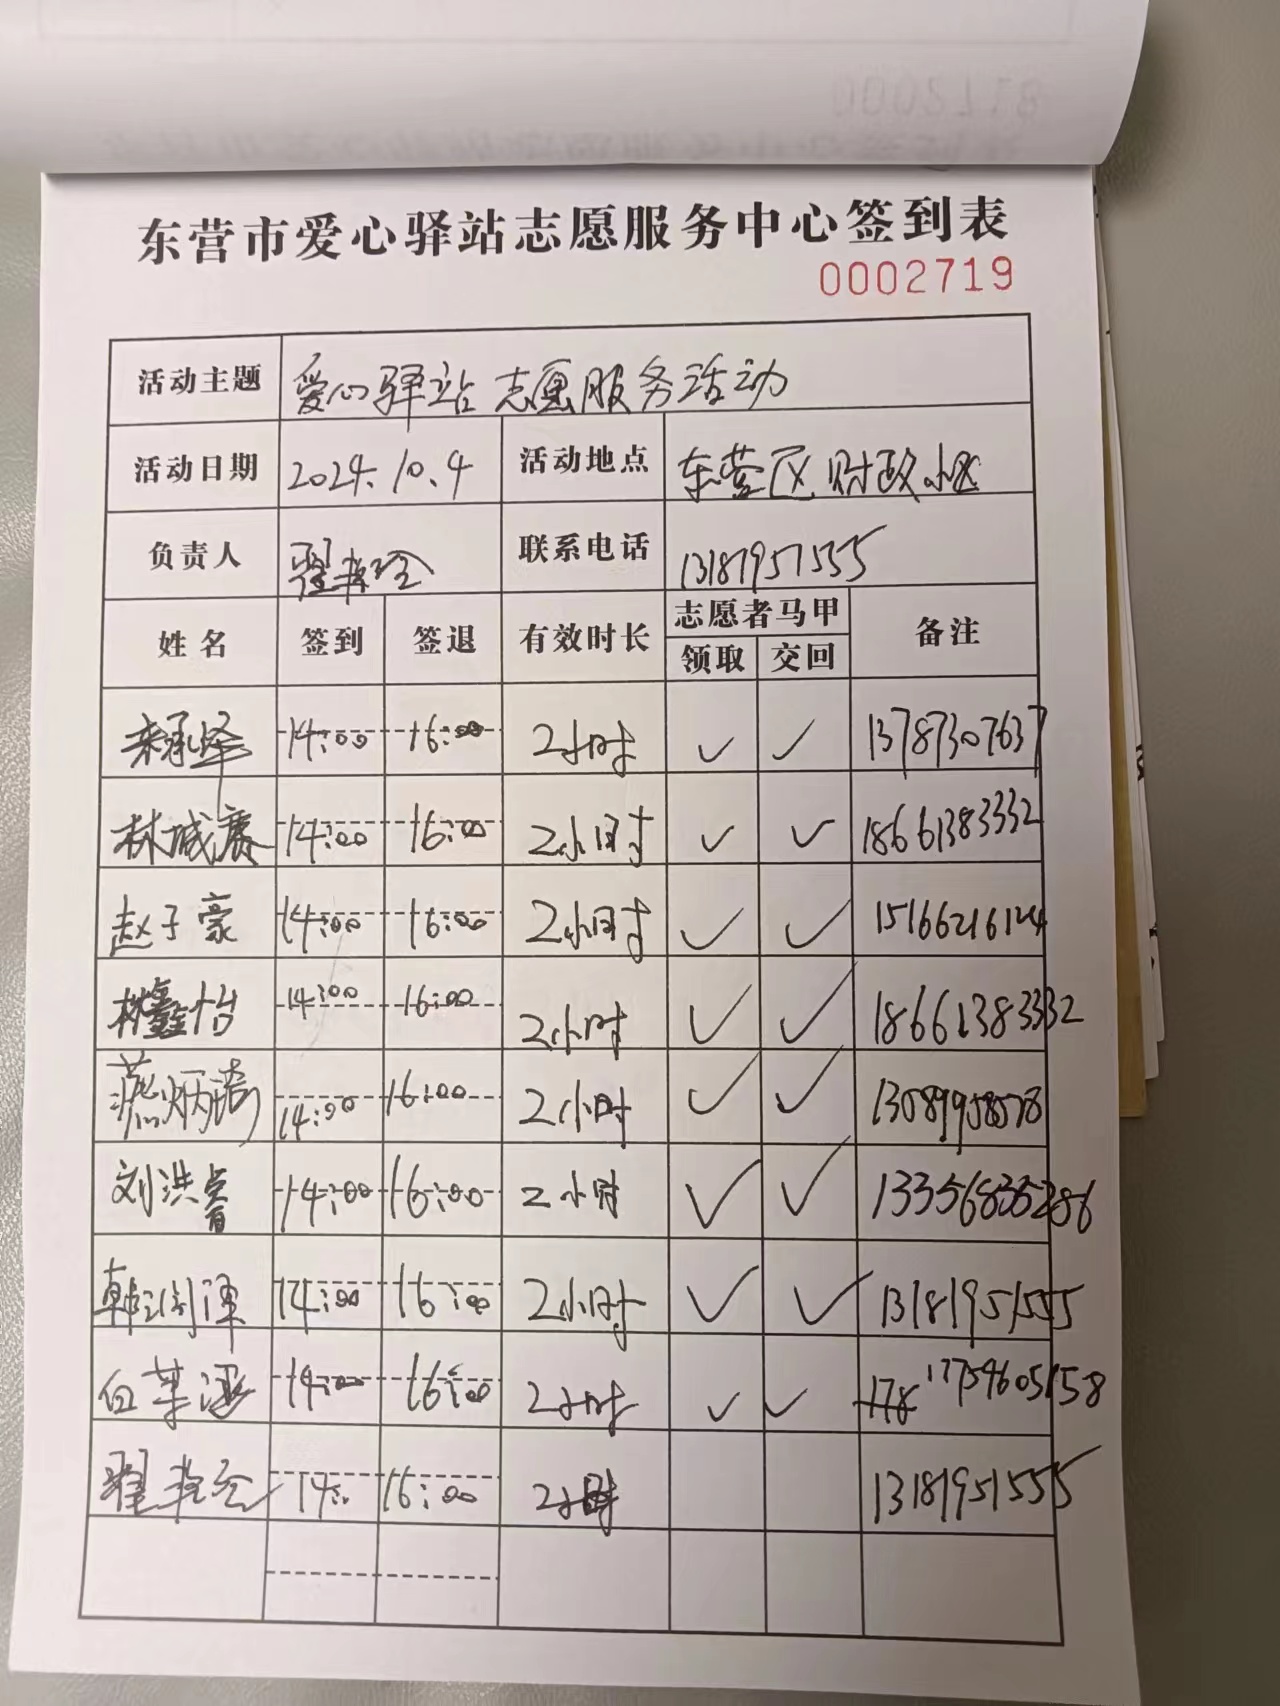 东营市爱心驿站志愿服务中心签到表
0002719
活动主题 爱心驿站志愿服务活动
活动日期 2024.10.4 活动地点 东营区财政小区
负责人 联系电话 13181951555
姓名 签到 签退 有效时长 志愿者马甲 备注
领取 交回
14:00 16:00 2小时 ✓ ✓ 13787307637
14:00 16:00 2小时 ✓ ✓ 18661383332
赵子豪 14:00 16:00 2小时 ✓ ✓ 15166216124
林鑫怡 14:00 16:00 2小时 ✓ ✓ 18661383332
燕炳琦 14:00 16:00 2小时 ✓ ✓
刘洪睿 14:00 16:00 2小时 ✓ ✓ 13356835286
韩润泽 14:00 16:00 2小时 ✓ ✓ 13181951555
14:00 16:00 2小时 ✓ ✓ 178 17754605158
14: 16:00 2小时 13181951555